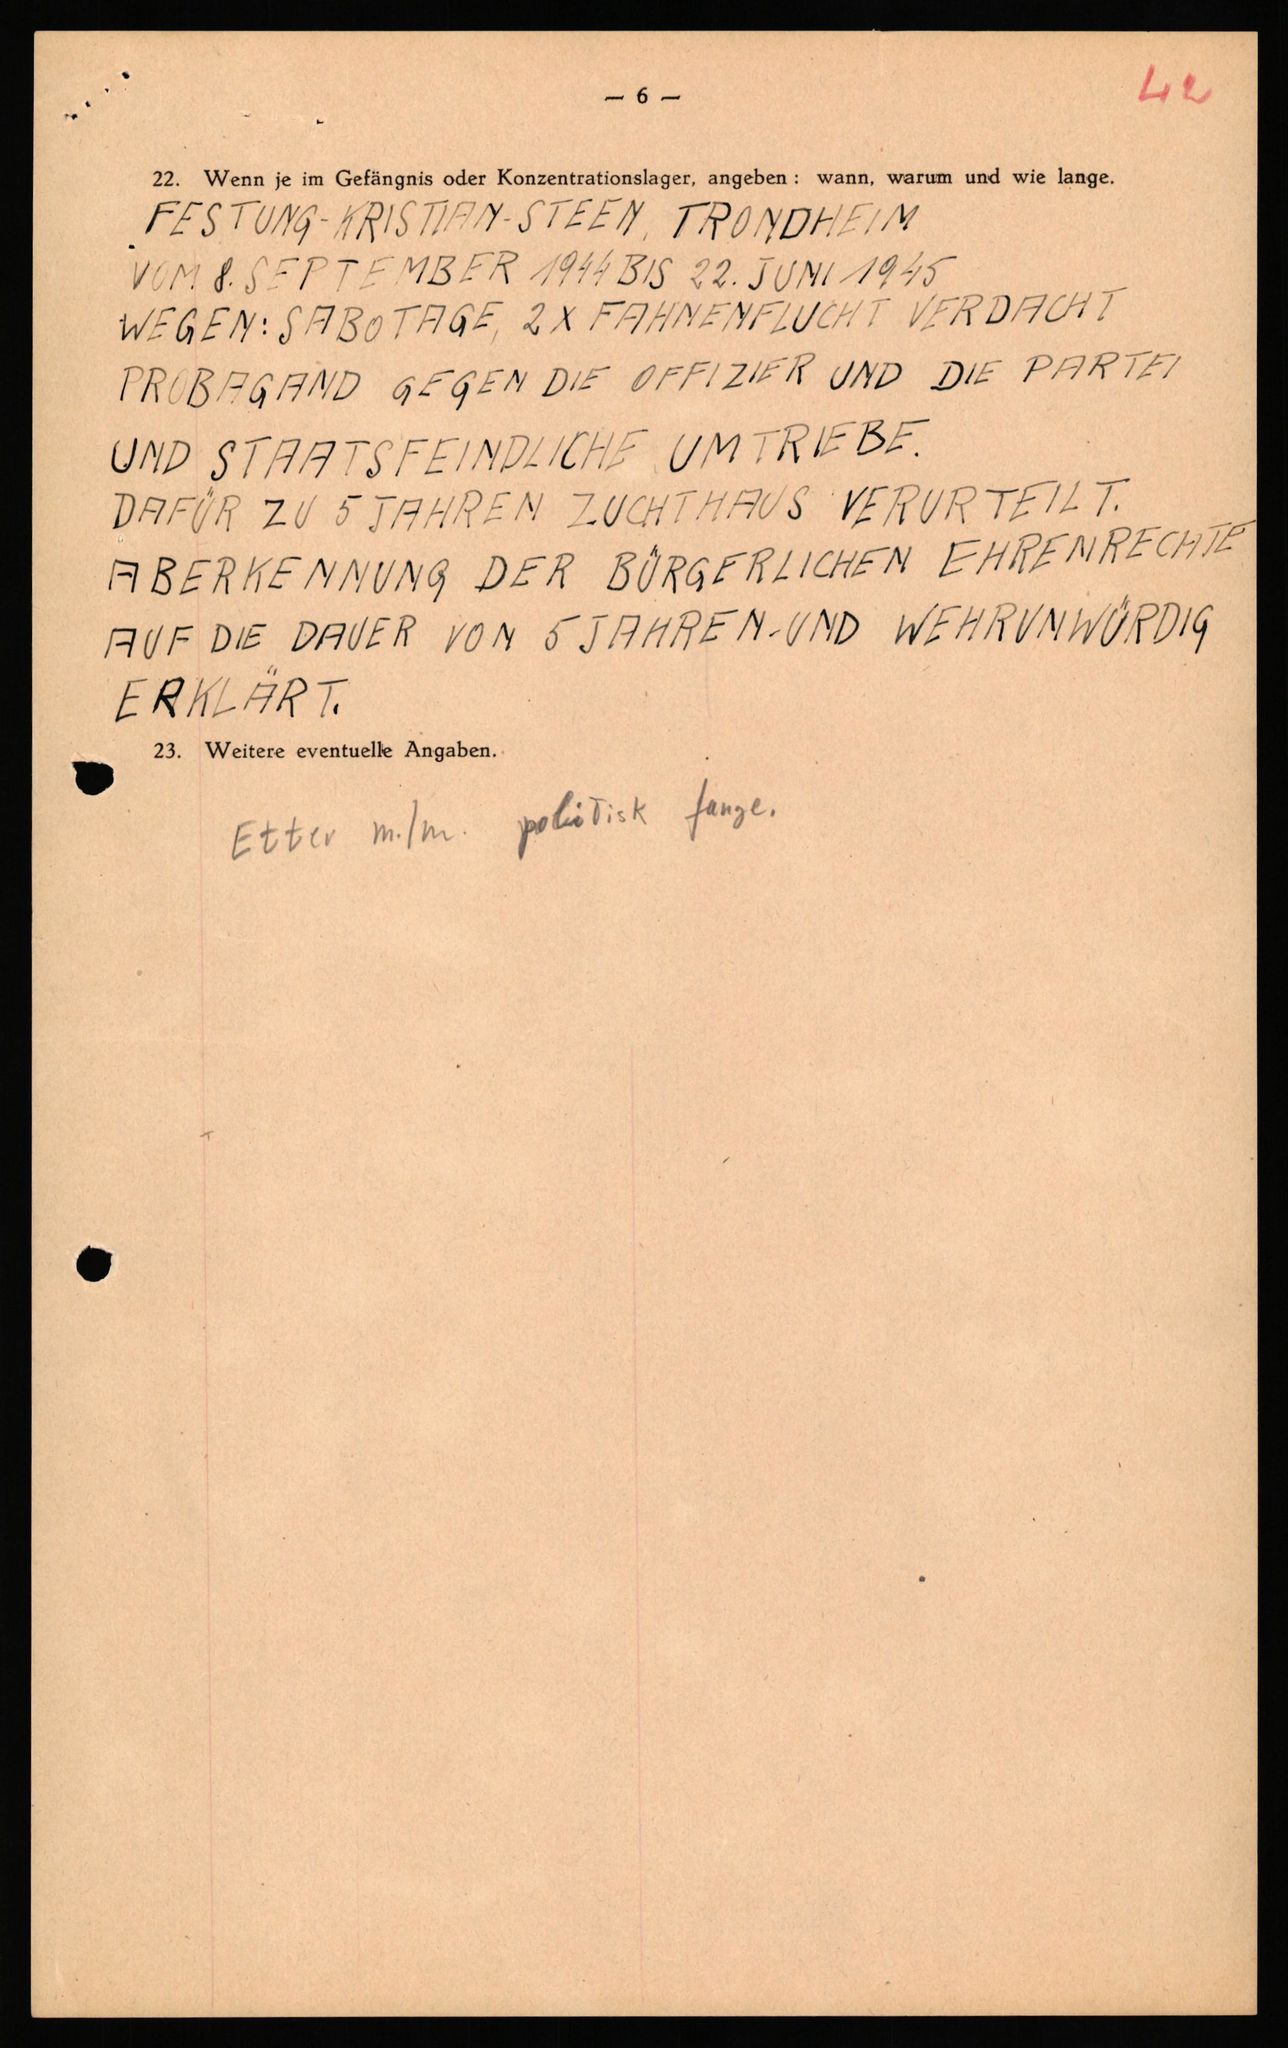 — 6 —
42
22. Wenn je im Gefängnis oder Konzentrationslager, angeben: wann, warum und wie lange.
FESTUNG-KRISTIAN-STEEN, TRONDHEIM
VOM 8. SEPTEMBER 1944 BIS 22. JUNI 1945
WEGEN: SABOTAGE, 2 X FAHNENFLUCHT VERDACHT
PROBAGAND GEGEN DIE OFFIZIER UND DIE PARTEI
UND STAATSFEINDLICHE UMTRIEBE.
DAFÜR ZU 5 JAHREN ZUCHTHAUS VERURTEILT.
ABERKENNUNG DER BÜRGERLICHEN EHRENRECHTE
AUF DIE DAUER VON 5 JAHREN-UND WEHRUNWÜRDIG
ERKLÄRT.
23. Weitere eventuelle Angaben.
Etter m./m. politisk fange.